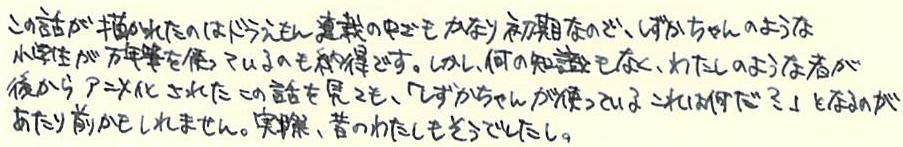 この話が描かれたのはドラえもん連載の中でもかなり初期なので、しずかちゃんのような
小学生が万年筆を使っているのも納得です。しかし、何の知識もなく、わたしのような者が
後からアニメ化されたこの話を見ても、「しずかちゃんが使っているこれは何だ？」となるのが
あたり前かもしれません。実際、昔のわたしもそうでしたし。